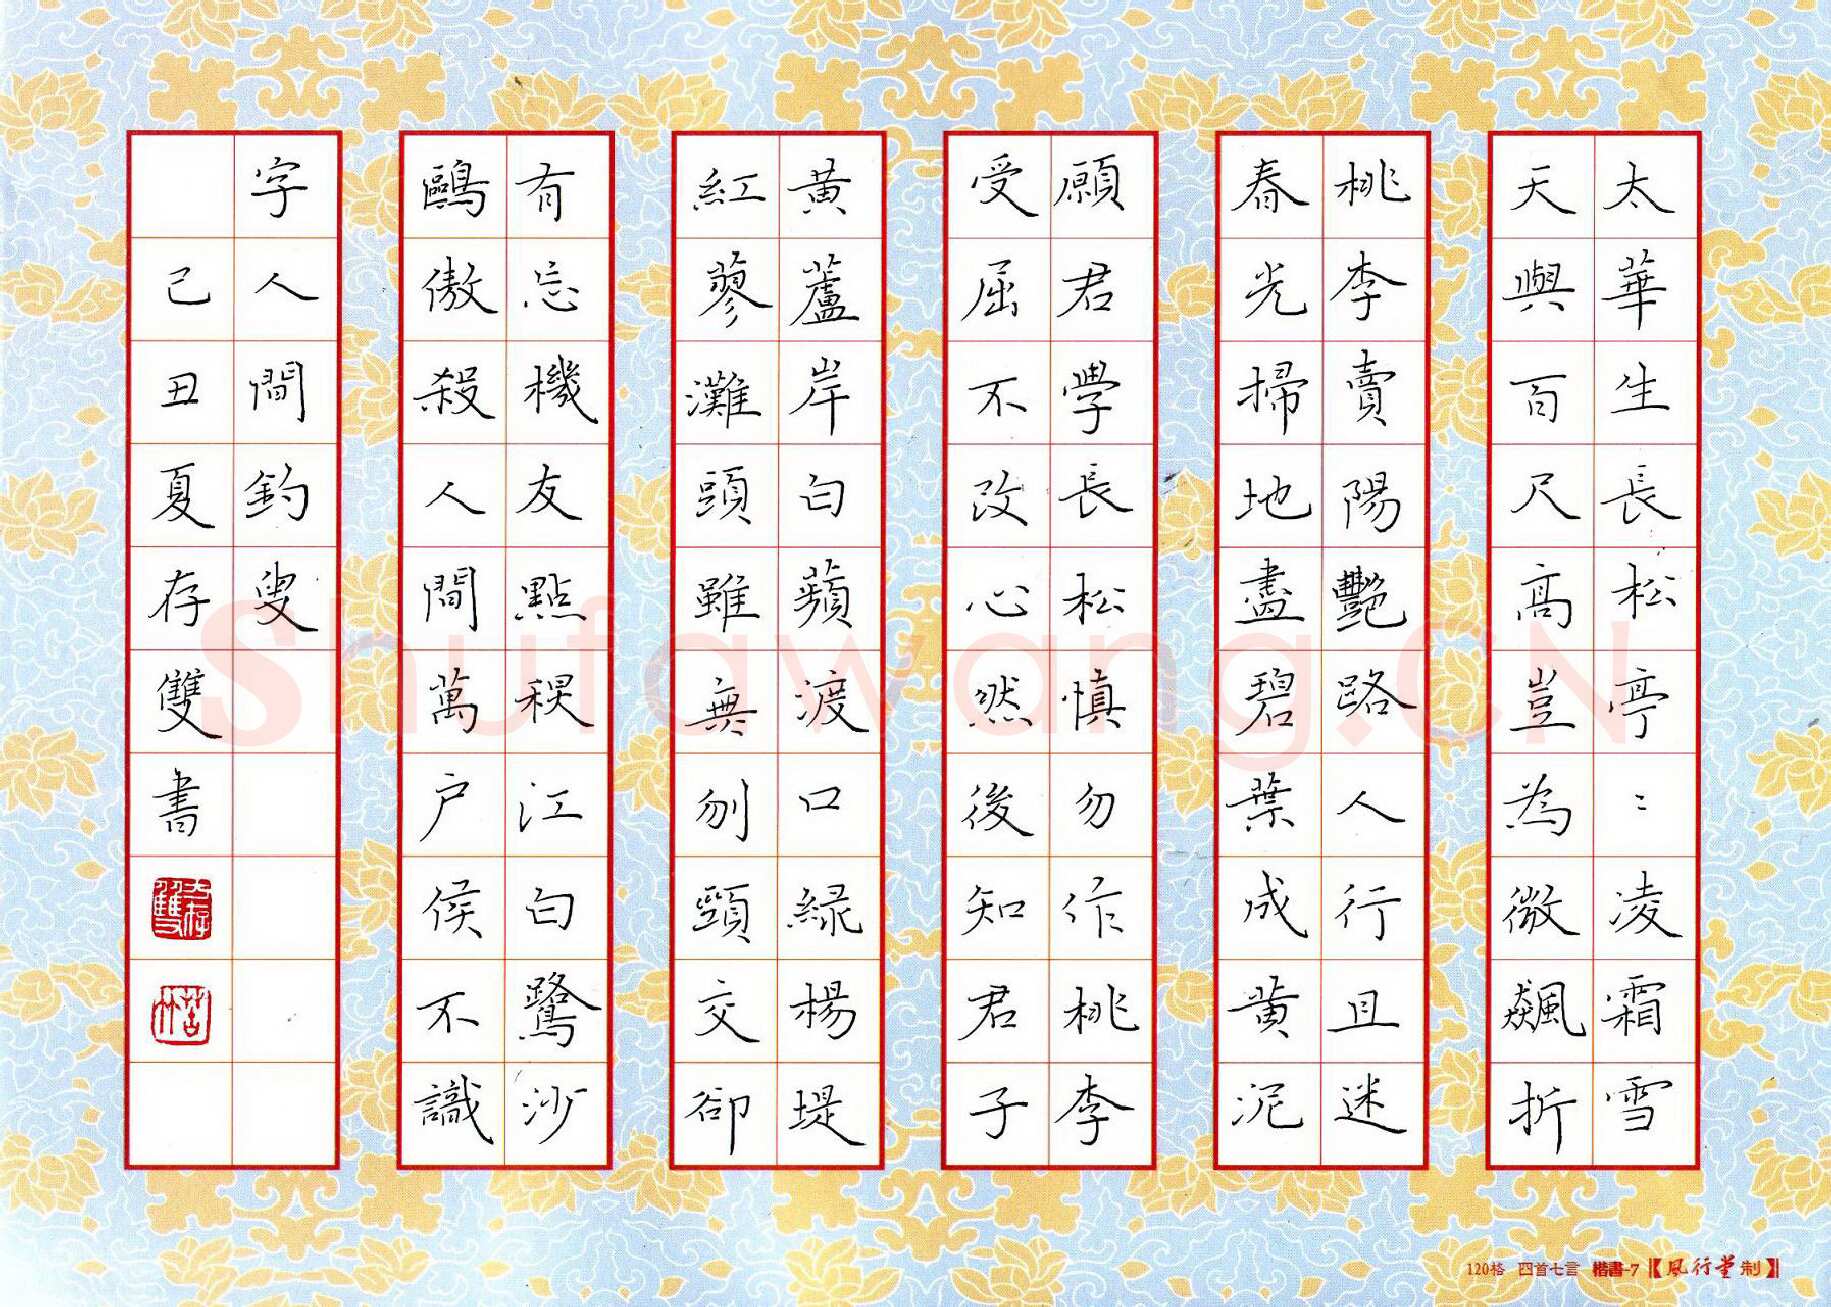 太華生長松亭〻凌霜雪
天與百尺高豈為微飆折
桃李賣陽艷路人行且迷
春光掃地盡碧葉成黃泥
願君學長松慎勿作桃李
受屈不改心然後知君子
黃蘆岸白蘋渡口綠楊堤
紅蓼灘頭雖無刎頸交卻
有忘機友點秋江白鷺沙
鷗傲殺人間萬戶侯不識
字人間釣叟
己丑夏存雙書
Shufawang.CN
120格 四首七言 楷書-7 【風行堂制】